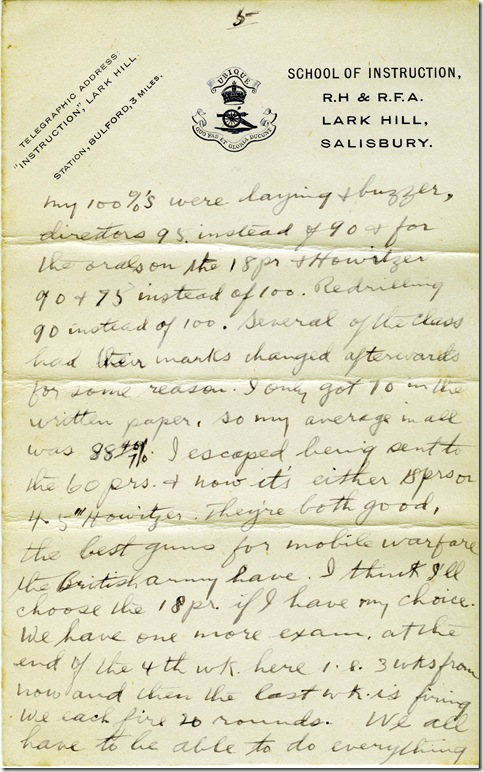 5
TELEGRAPHIC ADDRESS:
"INSTRUCTION," LARK HILL.
STATION, BULFORD, 3 MILES.
UBIQUE
QUO FAS ET GLORIA DUCUNT
SCHOOL OF INSTRUCTION,
R.H & R.F.A.
LARK HILL,
SALISBURY.
my 100%'s were laying & buzzer,
directors 95 instead of 90 & for
the orals on the 18pr & Howitzer
90 & 75 instead of 100. Redrilling
90 instead of 100. Several of the class
had their marks changed afterwards
for some reason. I only got 70 in the
written paper, so my average in all
was 88 4/7%. I escaped being sent to
the 60 prs. & now it's either 18prs or
4.5" Howitzer. They're both good,
the best guns for mobile warfare
the British army have. I think I'll
choose the 18pr. if I have my choice.
We have one more exam, at the
end of the 4th wk. here i.e. 3 wks from
now and then the last wk. is firing
We each fire 20 rounds. We all
have to be able to do everything